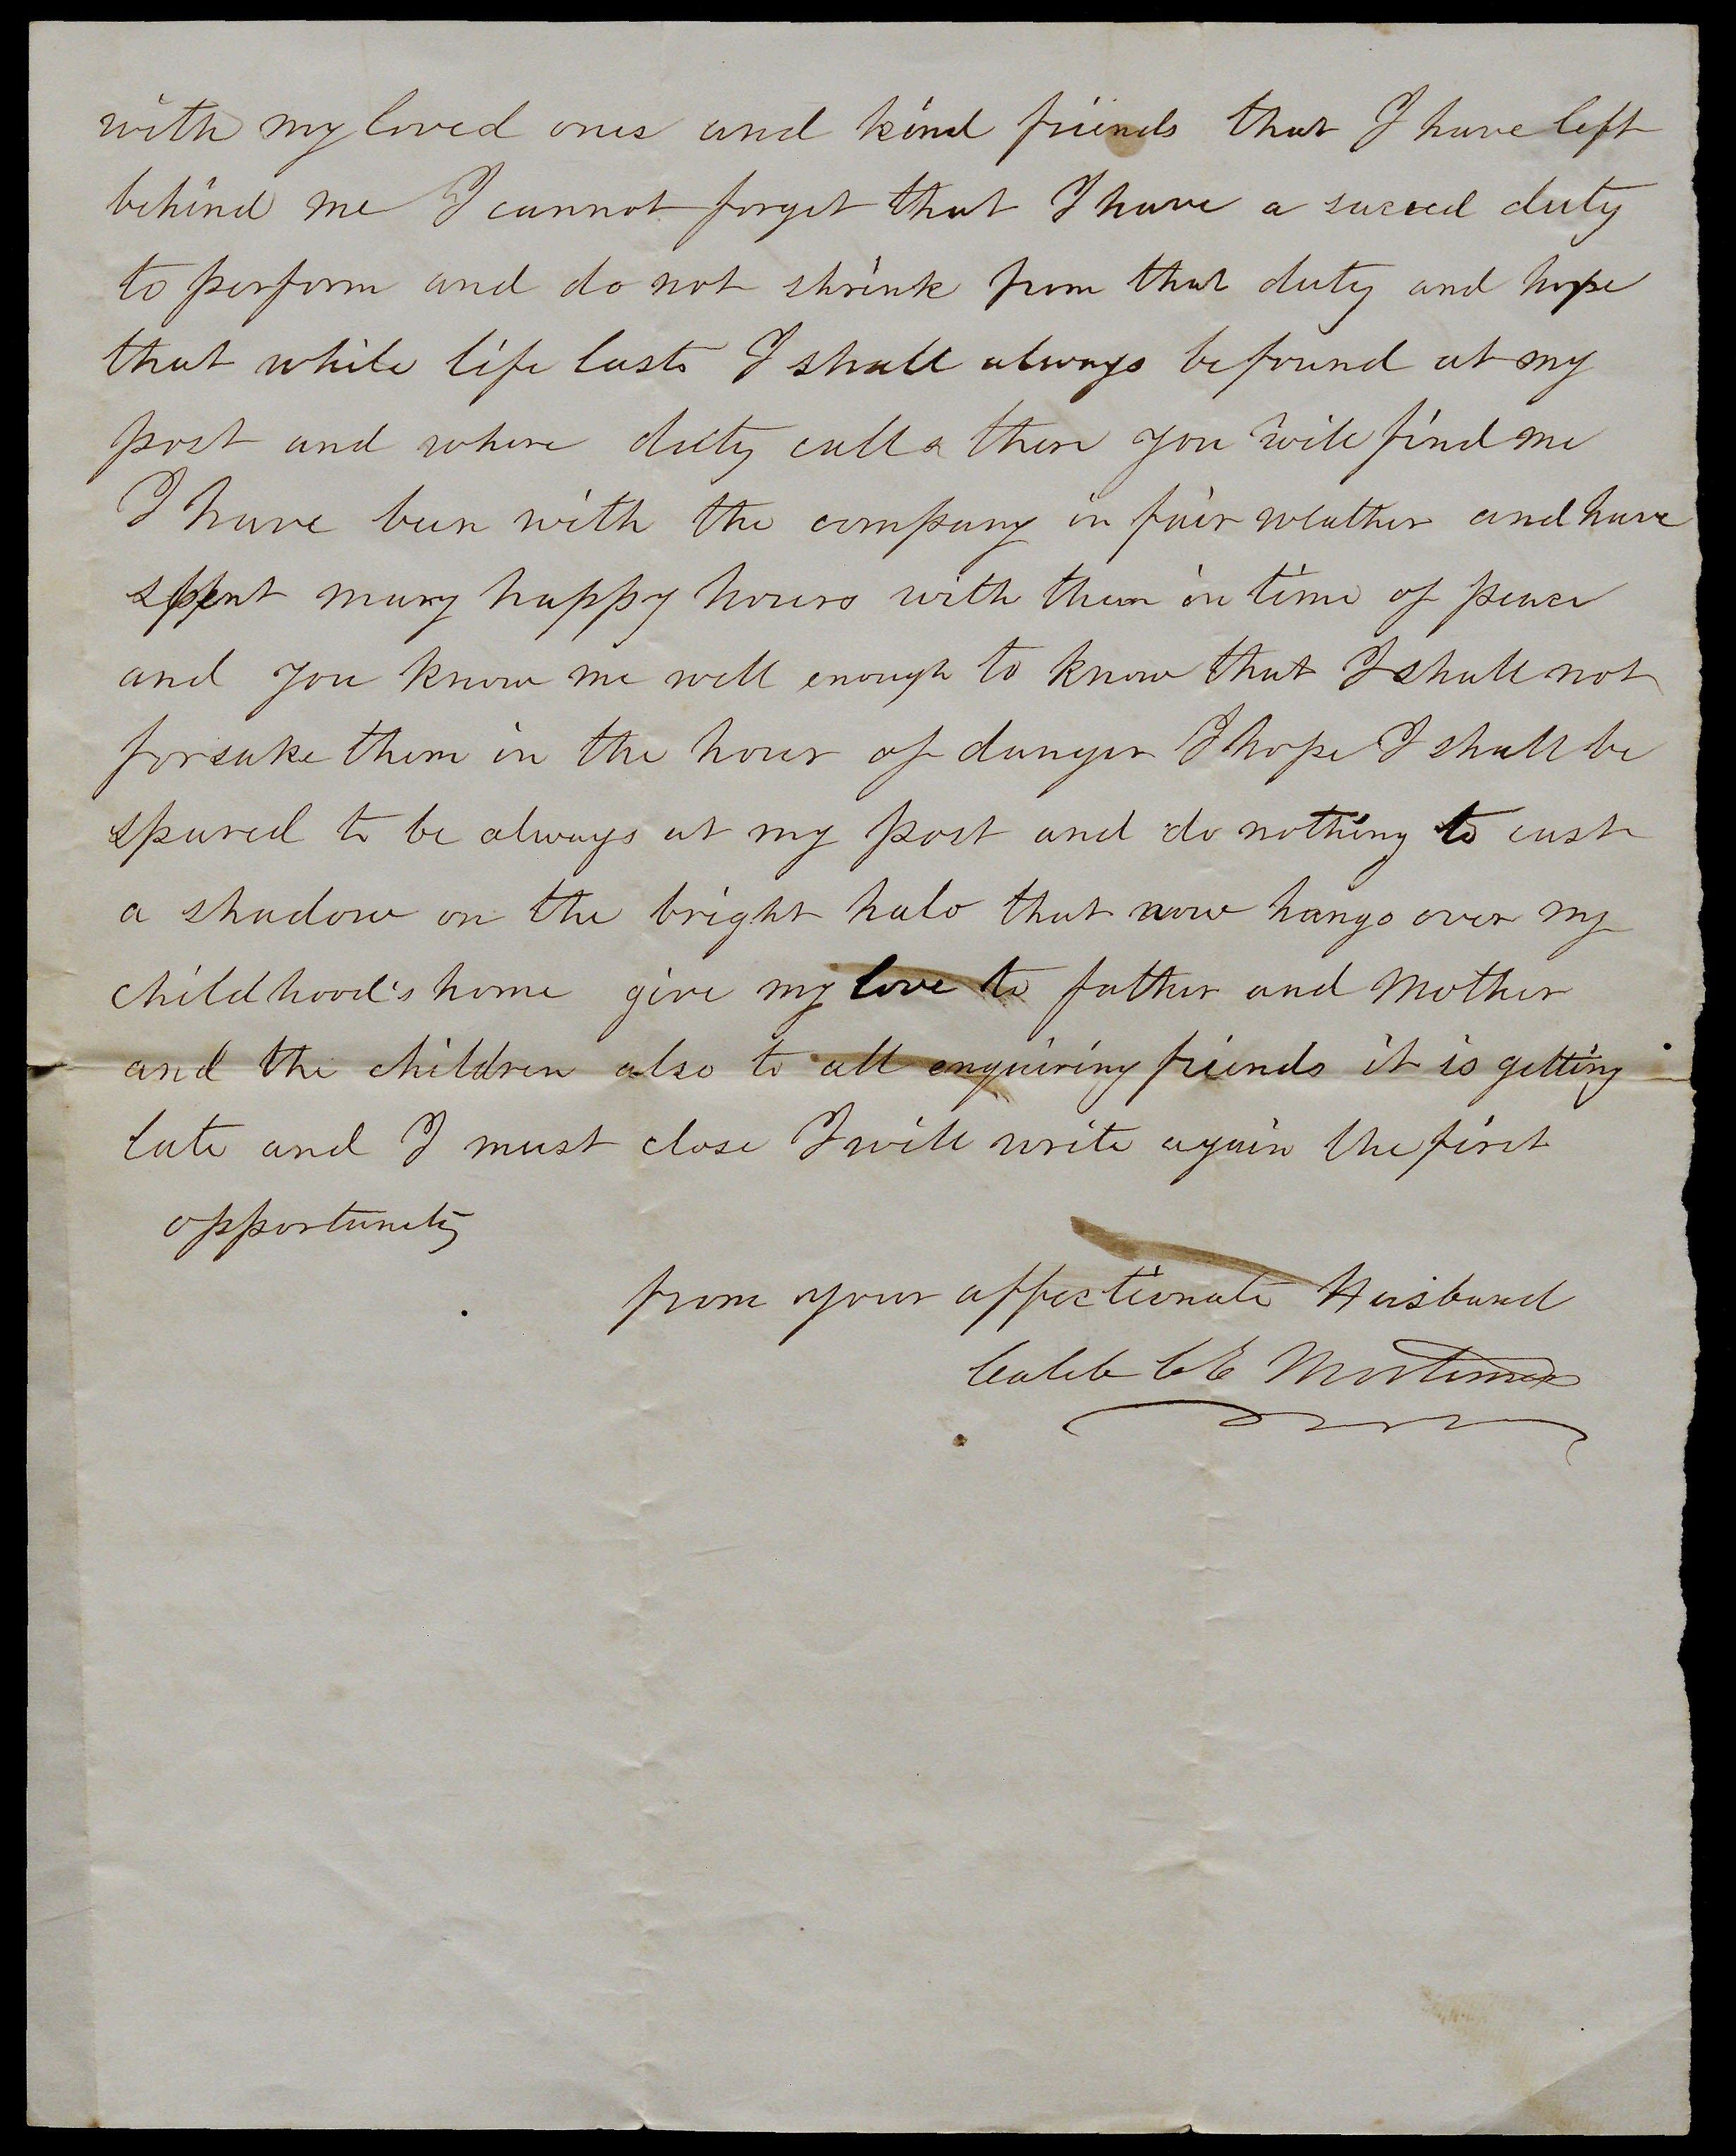 with my loved ones and kind friends that I have left
behind me I cannot forget that I have a sacred duty
to perform and do not shrink from that duty and hope
that while life lasts I shall always be found at my
post and where duty calls there you will find me
I have been with the company in fair weather and have
spent many happy hours with them in time of peace
and you know me well enough to know that I shall not
forsake them in the hour of danger I hope I shall be
spared to be always at my post and do nothing to cast
a shadow on the bright halo that now hangs over my
childhood's home give my love to father and Mother
and the children also to all enquiring friends it is getting
late and I must close I will write again the first
opportunity
from your affectionate Husband
Caleb C E Mortimer